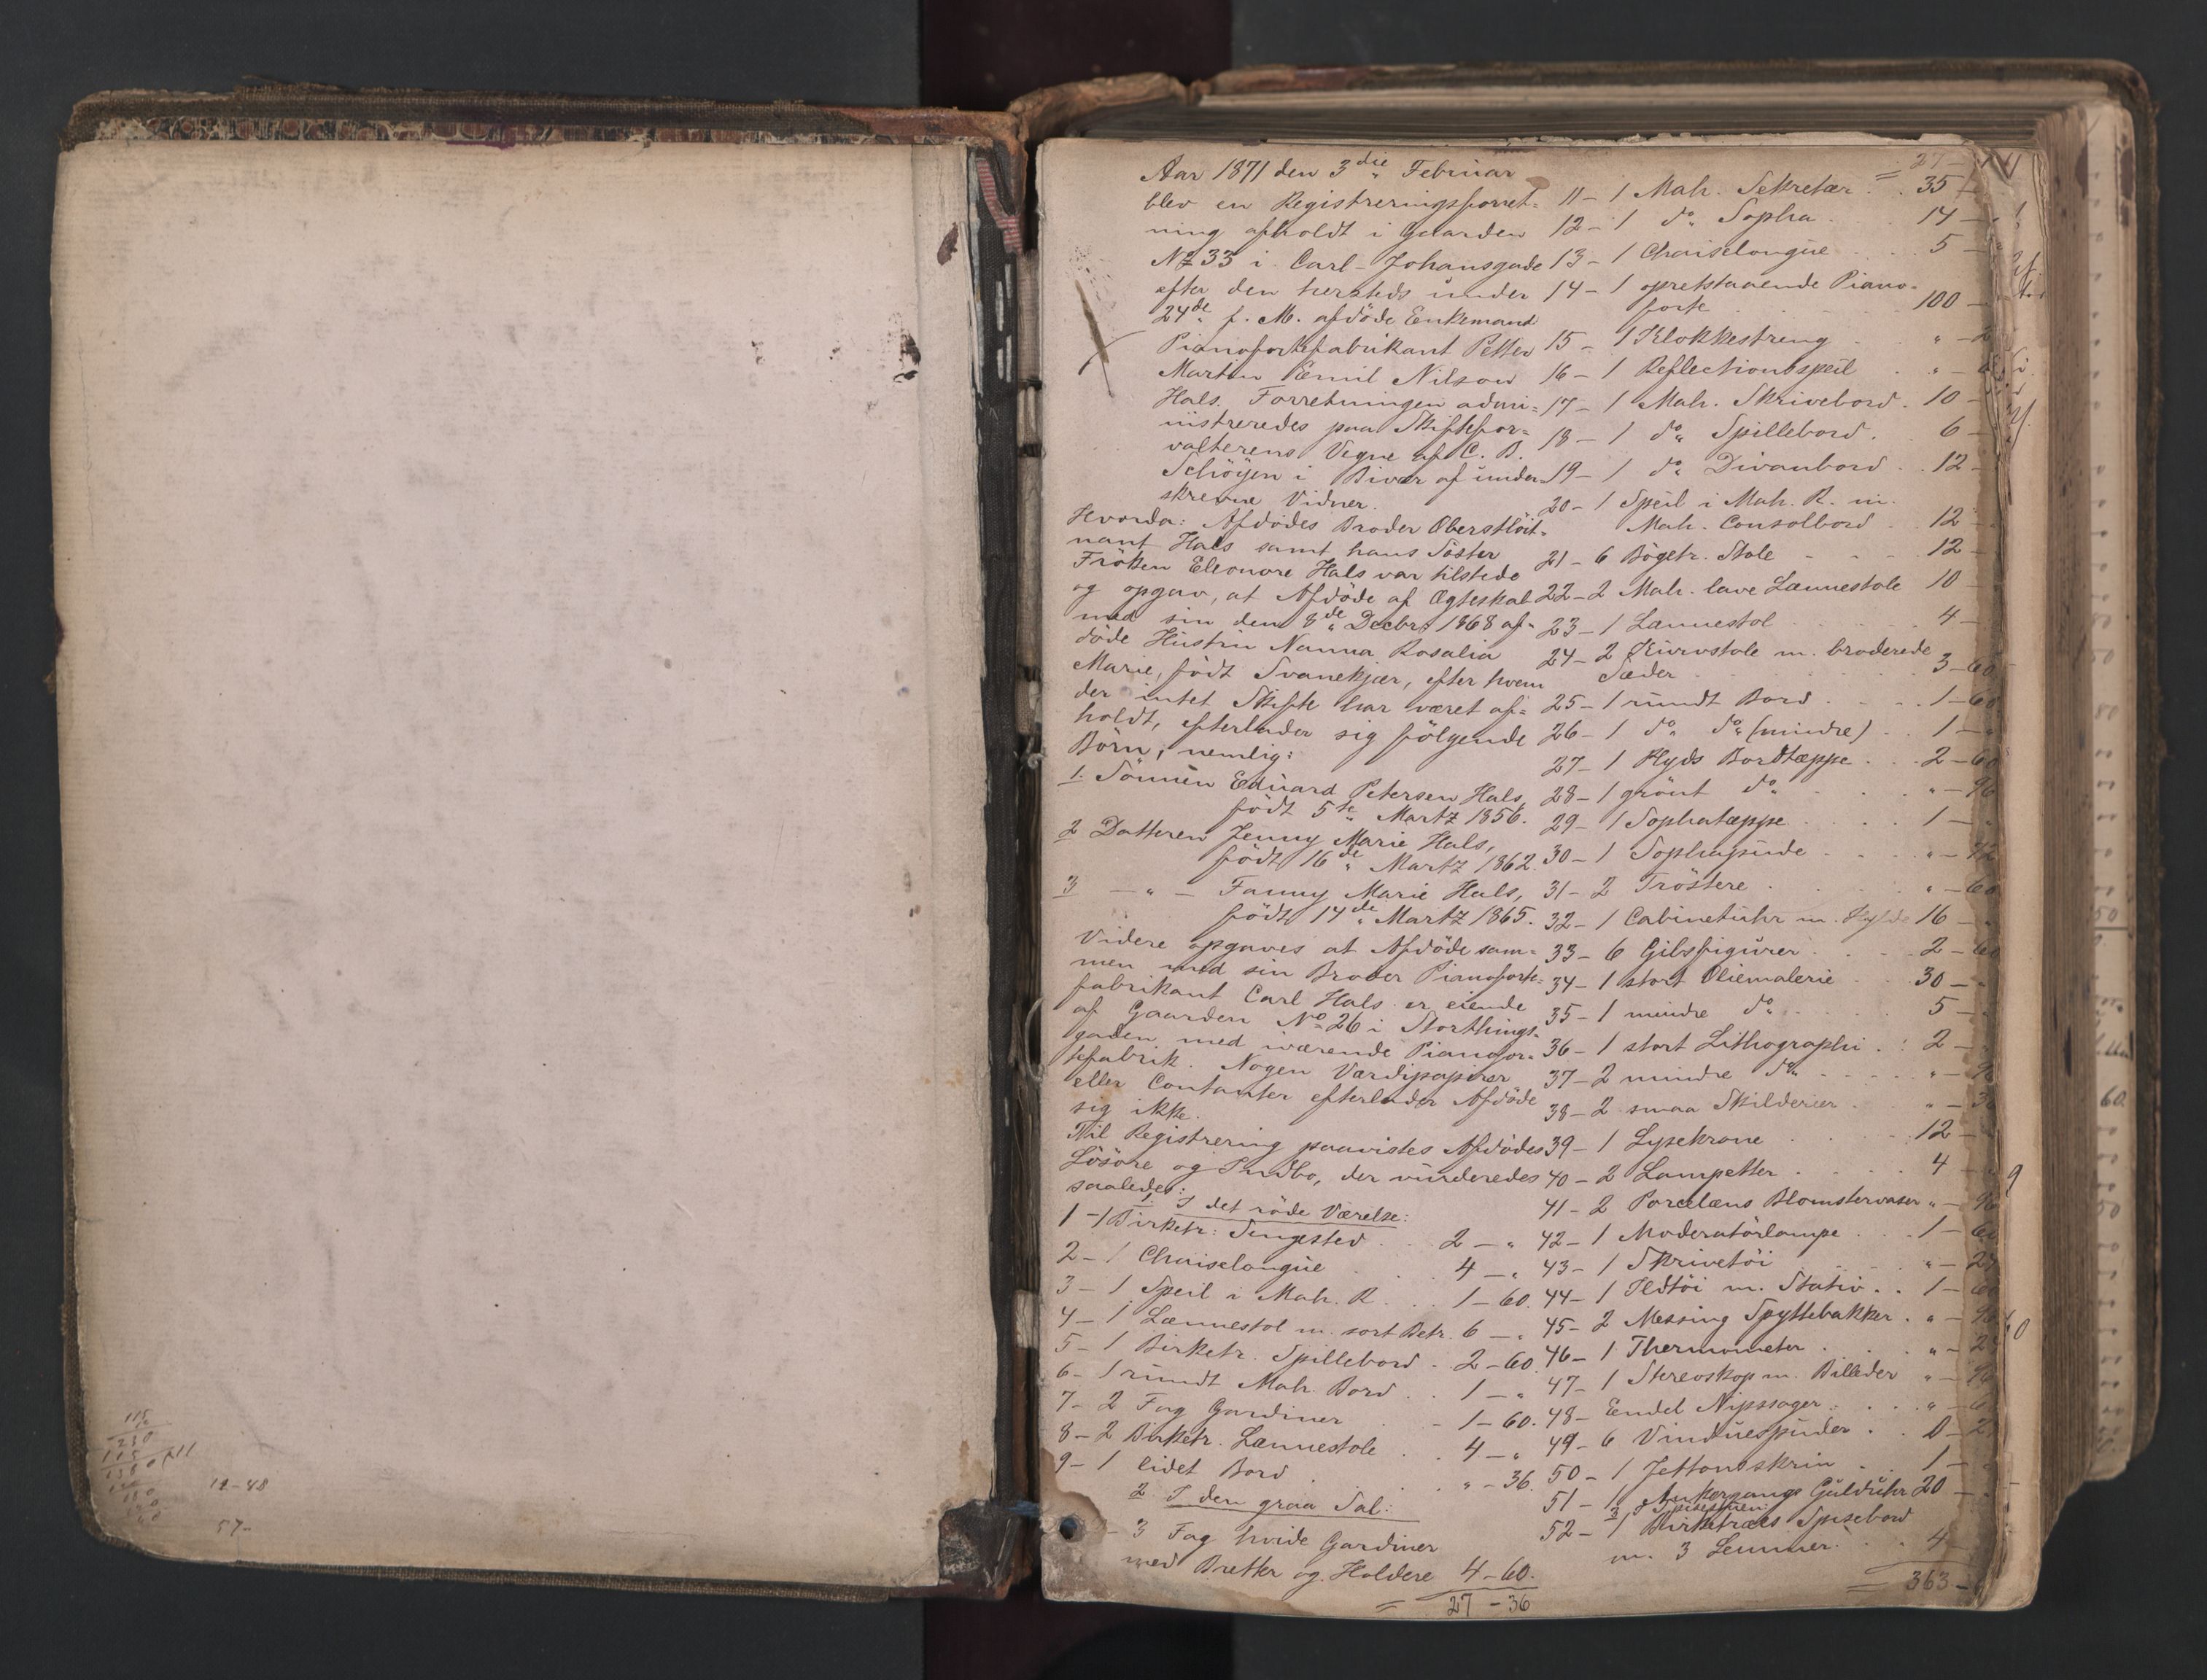 115
230
115
1380
12-48
57-
Aar 1871 den 3die Februar
blev en Registreringsforret-
ning afholdt i Gaarden
No 33 i Carl-Johansgade
efter den hersteds under
24de f. M. afdöde Enkemand
Pianofortefabrikant Petter
Martin Emil Nilson
Hals. Forretningen admi-
nistreredes paa Skiftefor-
valterens Vegne af C. B.
Schöyen i Bivær af under-
skrevne Vidner.
Hvorda: Afdödes Broder Oberstlöit-
nant Hals samt hans Söster
Fröken Eleonore Hals var tilstede
og opgav, at Afdöde af Ægteskab
med sin den 8de Decbr 1868 af-
döde Hustru Nanna Rosalia
Marie, födt Svanekjær, efter hvem
der intet Skifte har været af-
holdt, efterlader sig fölgende
Börn, nemlig:
1. Sönnen Eduard Petersen Hals,
födt 5te Martz 1856.
2 Datteren Jenny Marie Hals,
födt 16de Martz 1862
3 — " — Fanny Marie Hals,
födt 14de Martz 1865.
Videre opgaves at Afdöde sam-
men med sin Broder Pianoforte-
fabrikant Carl Hals er eiende
af Gaarden No 26 i Storthings-
gaden med iværende Pianofor-
tefabrik. Nogen Værdipapirer
eller Contanter efterlader Afdöde
sig ikke.
Til Registrering paavistes Afdödes
Lösöre og Indbo, der vurderedes
saaledes:
1, I det röde Værelse:
1-1 Birketr: Sengested . . 2 - "
2-1 Chaiselongue . . 4 - "
3-1 Speil i Mah. R. . . 1-60.
4-1 Lænnestol m. sort Betr. 6 - "
5-1 Birketr. Spillebord . 2-60.
6-1 rundt Mah. Bord . . 1 - "
7-2 Fag Gardiner . . 1-60.
8-2 Birketr. Lænnestole . 4 - "
9-1 lidet Bord . . " -36.
2 I den graa Sal:
- 3 Fag hvide Gardiner
med Bretter og Holdere 4-60.
= 27-36
= 27-
11-1 Mah. Sekretær . . 35-
12-1 do Sopha . . 14-
13-1 Chaiselongue . . 5-
14-1 opretstaaende Piano-
forte . . 100-
15-1 Klokkestreng . . " -
16-1 Reflectionsspeil . . " -
17-1 Mah. Skrivebord . 10-
18-1 do Spillebord . 6-
19-1 do Divanbord . . 12-
20-1 Speil i Mah. R. m.
Mah. Consolbord . 12-
21-6 Bögetr. Stole . . 12-
22-2 Mah. lave Lænnestole 10-
23-1 Lænnestol . . 4-
24-2 Kurvstole m. broderede
Sæder . . 3-60
25-1 rundt Bord . . 1-60
26-1 do do (mindre) . . 1-
27-1 Plyds Bordtæppe . . 2-60
28-1 grönt do . . " -96
29-1 Sophatæppe . . 1-
30-1 Sophapude . . " -72
31-2 Tröstere . . " -60
32-1 Cabinetuhr m. Hylde 16-
33-6 Gibsfigurer . . 2-60
34-1 stort Oliemalerie . . 30-
35-1 mindre do . . 5-
36-1 stort Lithographi . . 2-
37-2 mindre do . . " -
38-2 smaa Skilderier . " -
39-1 Lysekrone . . 12-
40-2 Lampetter . . 4-
41-2 Porcelæns Blomstervaser " -96
42-1 Moderatörlampe . . 1-60
43-1 Skrivetöi . . " -24
44-1 Ildtöi m. Stativ . . 1-60
45-2 Messing Spyttebakker . " -
46-1 Thermometer . . " -
47-1 Stereoskop m. Billeder " -96
48- Endel Nipssager . . " -
49-6 Vinduespuder . . 0-
50-1 Jettonskrin . . 1-
51-1 Ankergangs Gulduhr 20-
3 I Spisestuen:
52-1 Birketræs Spisebord
m. 3 Lemmer . . 4
= 363-